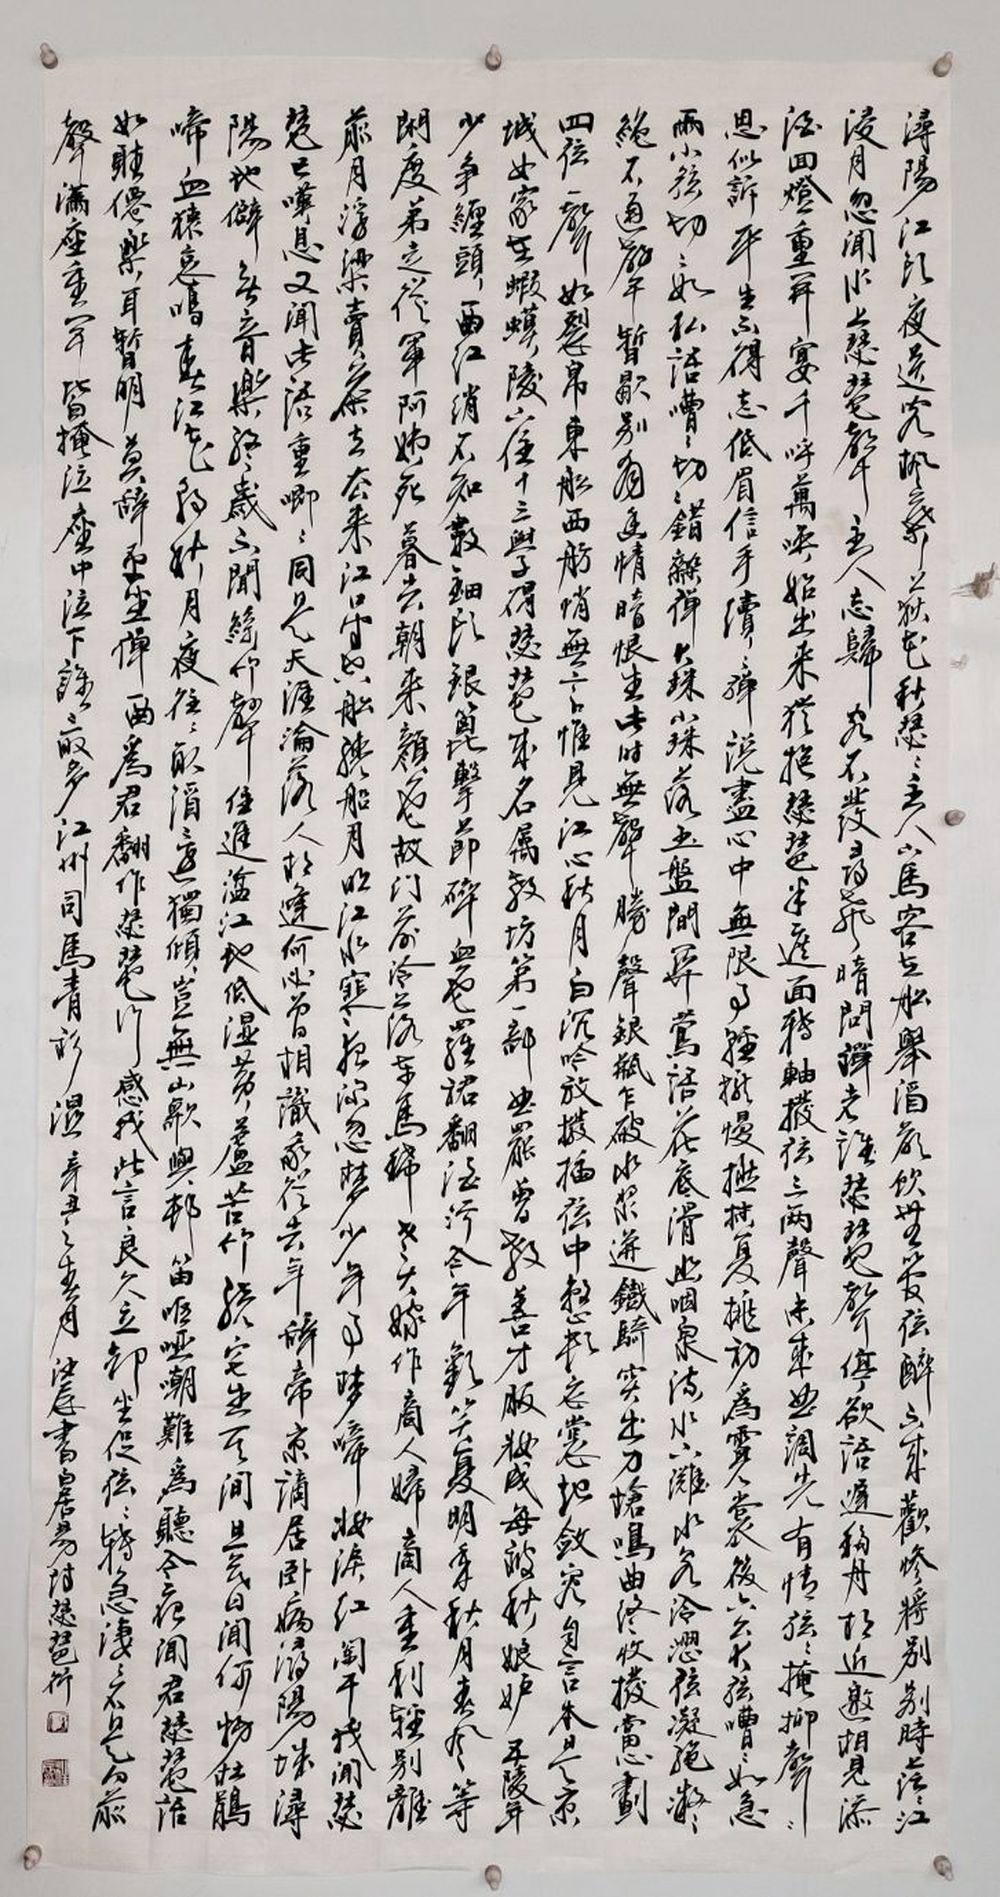 潯陽江頭夜送客楓葉荻花秋瑟瑟主人下馬客在船舉酒欲飲無管弦醉不成歡慘將別別時茫茫江
浸月忽聞水上琵琶聲主人忘歸客不發尋聲暗問彈者誰琵琶聲停欲語遲移舟相近邀相見添
酒回燈重開宴千呼萬喚始出來猶抱琵琶半遮面轉軸撥弦三兩聲未成曲調先有情弦弦掩抑聲聲
思似訴平生不得志低眉信手續續彈說盡心中無限事輕攏慢撚抹復挑初為霓裳後六幺大弦嘈嘈如急
雨小弦切切如私語嘈嘈切切錯雜彈大珠小珠落玉盤間關鶯語花底滑幽咽泉流水下灘水泉冷澀弦凝絕凝
絕不通聲暫歇別有幽情暗恨生此時無聲勝聲銀瓶乍破水漿迸鐵騎突出刀槍鳴曲終收撥當心劃
四弦一聲如裂帛東船西舫悄無言惟見江心秋月白沉吟放撥插弦中整頓衣裳起斂容自言本是京
城女家在蝦蟆陵下住十三學得琵琶成名屬教坊第一部曲罷曾教善才服妝成每被秋娘妒五陵年
少爭纏頭一曲紅綃不知數鈿頭銀篦擊節碎血色羅裙翻酒污今年歡笑復明年秋月春風等
閒度弟走從軍阿姨死暮去朝來顏色故門前冷落車馬稀老大嫁作商人婦商人重利輕別離
前月浮梁買茶去去來江口守空船繞船月明江水寒夜深忽夢少年事夢啼妝淚紅闌干我聞琵
琶已嘆息又聞此語重唧唧同是天涯淪落人相逢何必曾相識我從去年辭帝京謫居臥病潯陽城潯
陽地僻無音樂終歲不聞絲竹聲住近湓江地低濕黃蘆苦竹繞宅生其間旦暮聞何物杜鵑
啼血猿哀鳴春江花朝秋月夜往往取酒還獨傾豈無山歌與村笛嘔啞嘲難為聽今夜聞君琵琶語
如聽仙樂耳暫明莫辭更坐彈一曲為君翻作琵琶行感我此言良久立卻坐促弦弦轉急淒淒不是向前
聲滿座重聞皆掩泣座中泣下誰最多江州司馬青衫濕 辛丑之春月 書白居易詩琵琶行